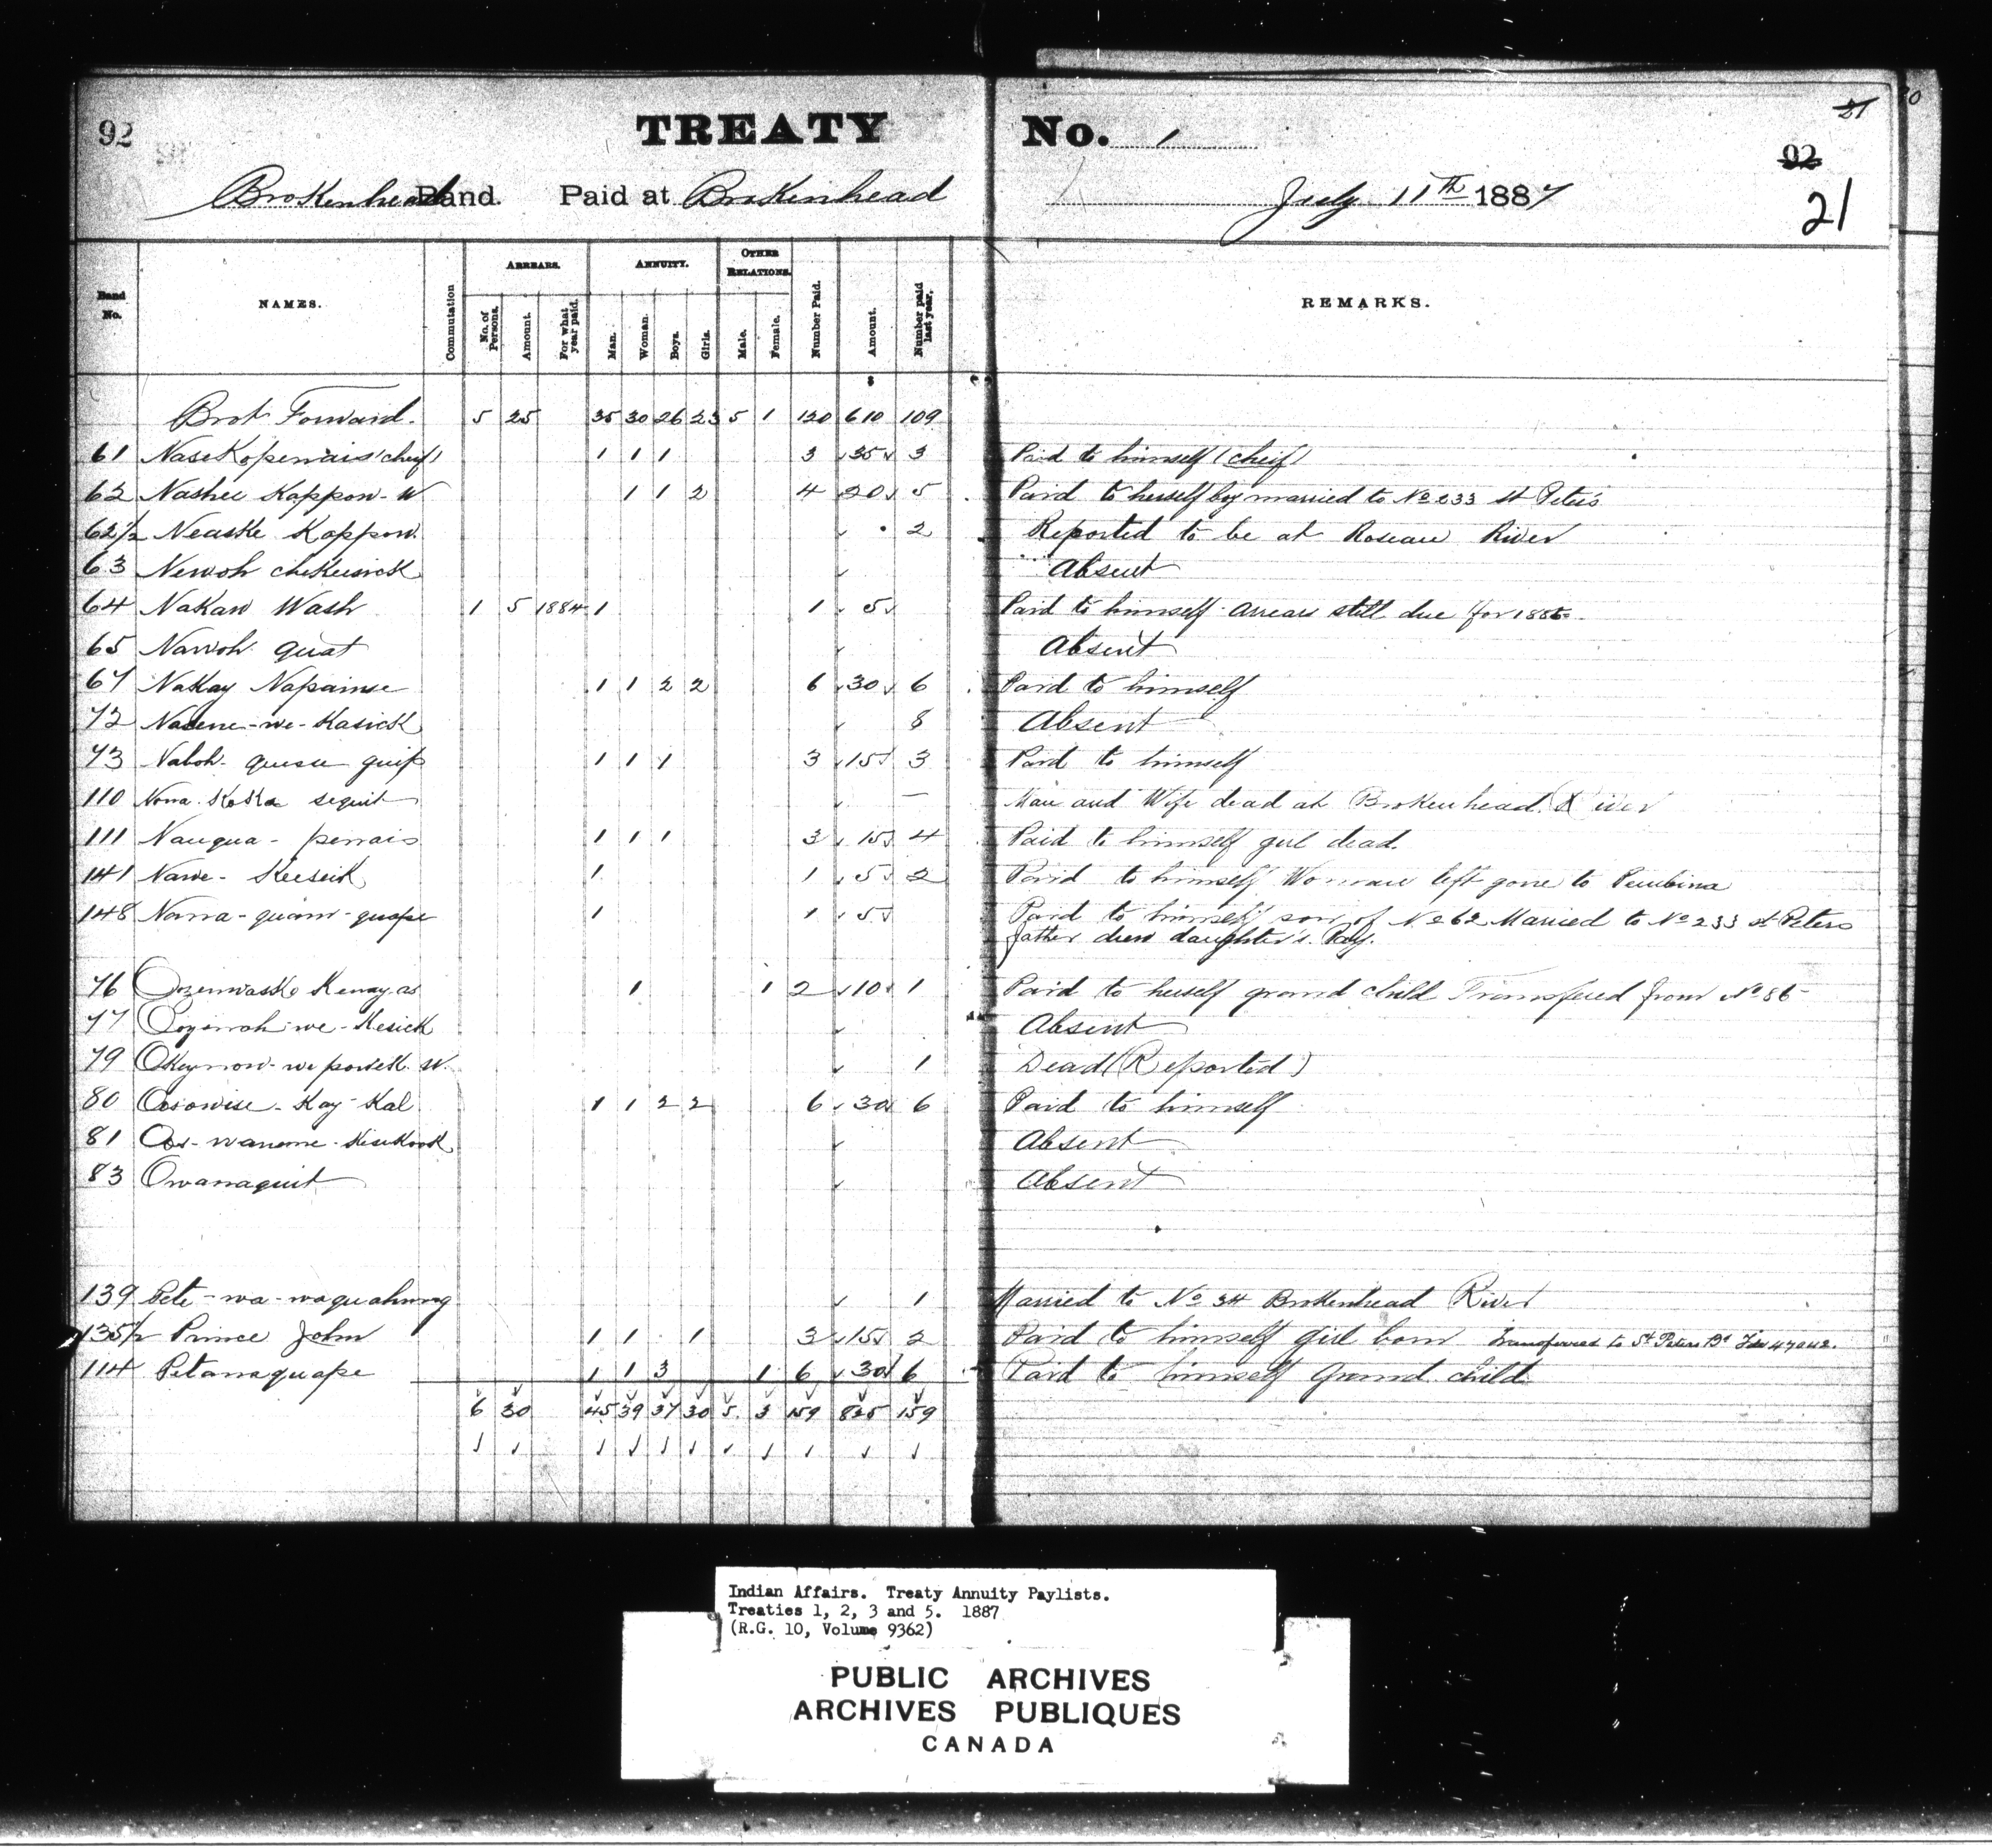 92 TREATY No. 1 21
92
21
Brokenhead Band. Paid at Brokenhead July 11th 1887
Band No. NAMES. Commutation ARREARS. No. of Persons. Amount. For what year paid. ANNUITY. Man. Woman. Boys. Girls. OTHER RELATIONS. Male. Female. Number Paid. Amount. Number paid last year. REMARKS.
$
Brot Forward. 5 25 35 30 26 23 5 1 120 610 109
61 NaseKopenais (cheif) 1 1 1 3 35 3 Paid to himself (cheif)
62 Nashee Kappow - W 1 1 2 4 20 5 Paid to herself boy married to No 233 St Peters
62½ Neaske Kappow. 2 Reported to be at Roseau River
63 Newoh cheKeesick Absent
64 Nakaw Wash 1 5 1884 1 1 5 Paid to himself arrears still due for
65 Nawoh quat Absent
67 NaKay Napainse 1 1 2 2 6 30 6 Paid to himself
72 -we-Kasick 8 Absent
73 Naboh- quesee 1 1 1 3 15 3 Paid to himself
110 Nona KoKa sequit — Man and Wife dead at Brokenhead River
111 Nauqua - penais 1 1 1 3 15 4 Paid to himself girl dead.
141 Nawe - Keeseik 1 1 5 2 Paid to himself Woman left gone to Pembina
148 Nana - quam - quape 1 1 5 Paid to himself son of No 62 Married to No 233 St Peters
father drew daughter's Pay.
76 Kenay.as 1 1 2 10 1 Paid to herself grand child Transfered from No 86
77 we - Kesick Absent
79 we 1 Dead (Reported)
80 Oosowise - Kay - Kal 1 1 2 2 6 30 6 Paid to himself
81 wanome - Absent
83 Owanaquit Absent
139 Pete - wa - waquahnung 1 Married to No 34 Brokenhead River
135½ Prince John 1 1 1 3 15 2 Paid to himself girl born Transferred to St Peters Bd
114 Petanaquape 1 1 3 1 6 30 6 Paid to himself grand child
6 30 45 39 37 30 5 3 159 825 159
Indian Affairs. Treaty Annuity Paylists.
Treaties 1, 2, 3 and 5. 1887
(R.G. 10, Volume 9362)
PUBLIC ARCHIVES
ARCHIVES PUBLIQUES
CANADA